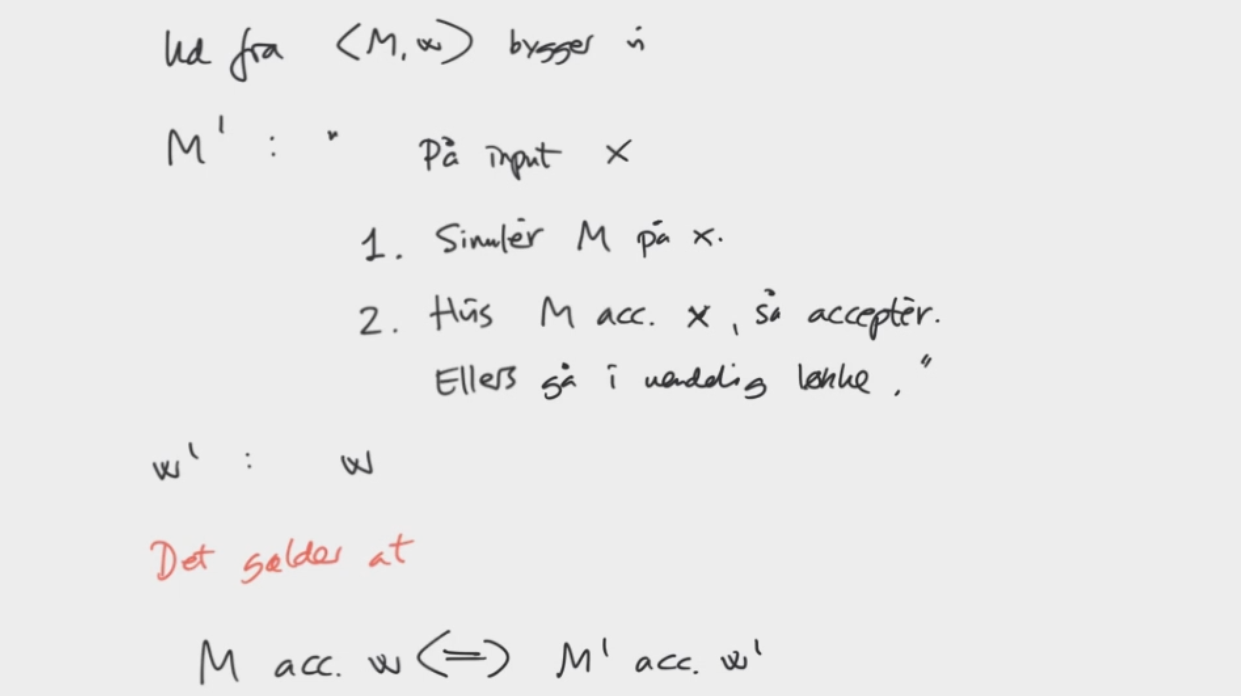 Ud fra <M, w> bygger vi
M' : " På input x
1. Simulér M på x.
2. Hvis M acc. x, så acceptér.
Ellers gå i uendelig løkke."
w' : w
Det gælder at
M acc. w <=> M' acc. w'